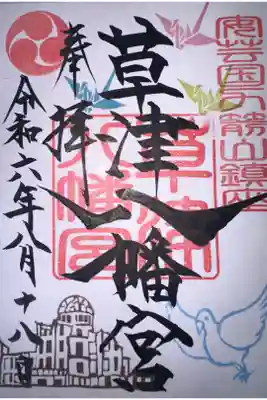 安芸国力箭山鎮座
草津八幡宮
草津
八幡宮
奉拝
令和六年八月十八日